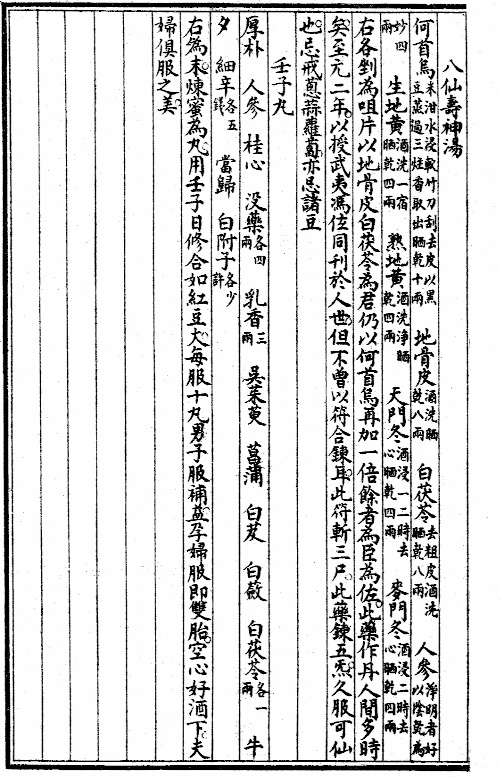 八仙壽神湯
何首烏米泔水浸軟竹刀刮去皮以黑豆蒸過三炷香取出晒乾十兩 地骨皮酒洗晒乾八兩 白茯苓去粗皮酒洗晒乾八兩 人參淨明者好以陰乾為
妙四兩 生地黃酒洗一宿晒乾四兩 熟地黃酒洗淨晒乾四兩 天門冬酒浸一二時去心晒乾四兩 麥門冬酒浸二時去心晒乾四兩
右各剉為咀片以地骨皮白茯苓為君仍以何首烏再加一倍餘者為臣為佐此藥作丹人間多時
矣至元二年以授武夷馮位同刊於人世但不曾以符合鍊耳此符斬三尸此藥鍊五炁久服可仙
也忌戒蔥蒜蘿蔔亦忌諸豆
壬子丸
厚朴 人參 桂心 沒藥各四兩 乳香三兩 吳茱萸 菖蒲 白芨 白蘞 白茯苓各一兩 牛
夕 細辛各五錢 當歸 白附子各少許
右為末煉蜜為丸用壬子日修合如紅豆大每服十丸男子服補益孕婦服即雙胎空心好酒下夫
婦俱服之美